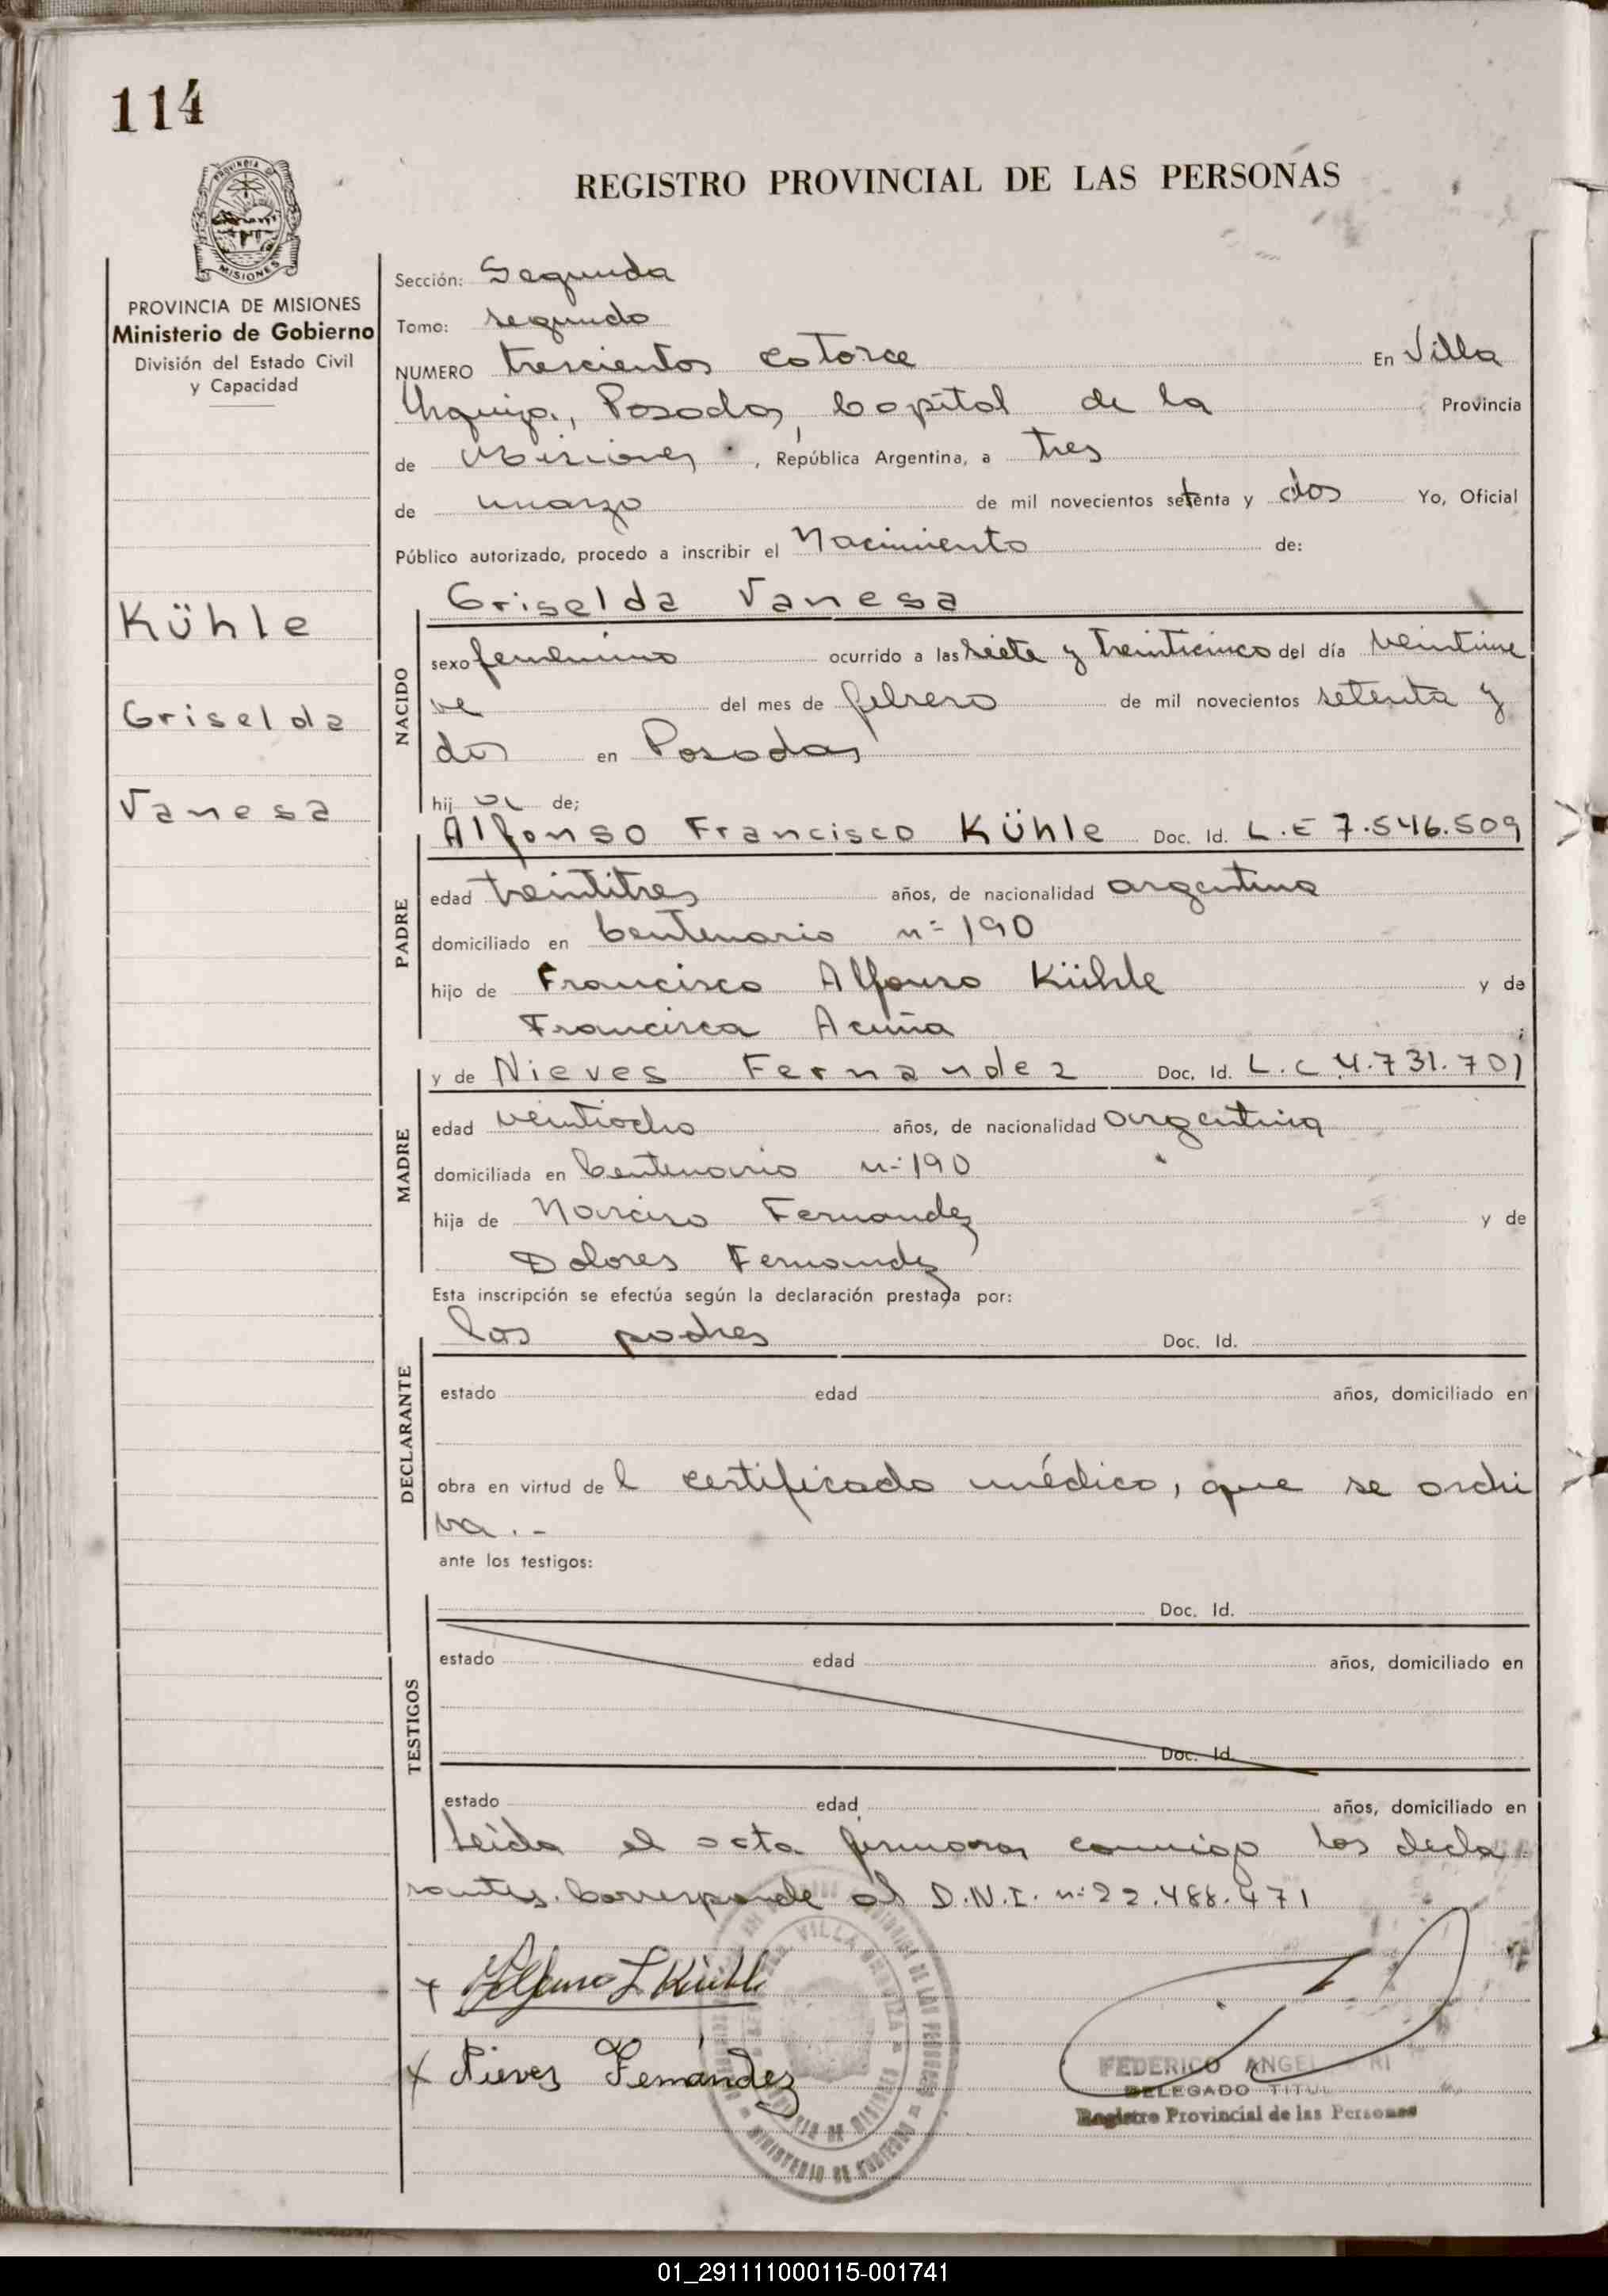 114
PROVINCIA DE
MISIONES
REGISTRO PROVINCIAL DE LAS PERSONAS
PROVINCIA DE MISIONES
Ministerio de Gobierno
División del Estado Civil
y Capacidad
Kühle
Griselda
Vanesa
Sección: Segunda
Tomo: segundo
NUMERO trescientos catorce En Villa
Urquiza, Posadas, Capital de la Provincia
de Misiones, República Argentina, a tres
de marzo de mil novecientos setenta y dos Yo, Oficial
Público autorizado, procedo a inscribir el Nacimiento de:
Griselda Vanesa
NACIDO
sexo femenino ocurrido a las siete y treinticinco del día veintinue
ve del mes de febrero de mil novecientos setenta y
dos en Posadas
hija de;
Alfonso Francisco Kühle Doc. Id. L.E 7.546.509
PADRE
edad treintitres años, de nacionalidad argentina
domiciliado en Centenario nº 190
hijo de Francisco Alfonso Kühle y de
Francisca Acuña ;
y de Nieves Fernandez Doc. Id. L.C 4.731.701
MADRE
edad veintiocho años, de nacionalidad argentina
domiciliada en Centenario nº 190
hija de Narciso Fernandez y de
Dolores Fernandez
Esta inscripción se efectúa según la declaración prestada por:
los padres Doc. Id.
DECLARANTE
estado edad años, domiciliado en
obra en virtud del certificado médico, que se archi
va.-
ante los testigos:
Doc. Id.
TESTIGOS
estado edad años, domiciliado en
Doc. Id.
estado edad años, domiciliado en
Leída el acta firman conmigo los decla
rantes. Corresponde al D.N.I. nº 22.488.471
x Alfonso F Kühle
x Nieves Fernández
VILLA URQUIZA
MINISTERIO DE GOBIERNO
FEDERICO ANGEL
DELEGADO TITUL
Registro Provincial de las Personas
01_291111000115-001741